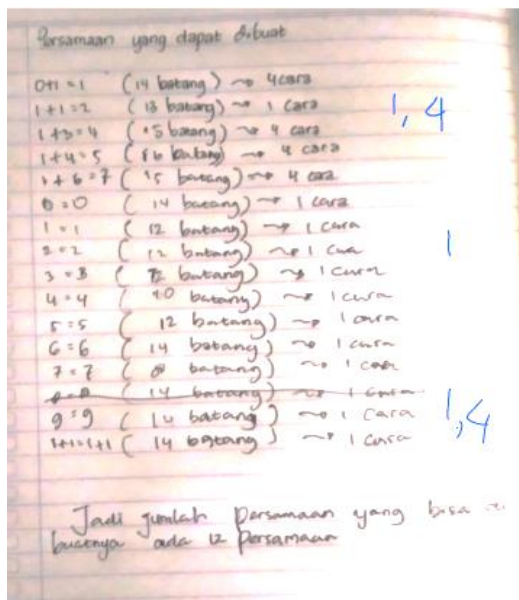 Persamaan yang dapat dibuat
0+1 = 1 (14 batang) ~> 4 cara
1+1 = 2 (13 batang) ~> 1 cara
1, 4
1+3 = 4 (15 batang) ~> 4 cara
1+4 = 5 (16 batang) ~> 4 cara
1+6 = 7 (15 batang) ~> 4 cara
0 = 0 (14 batang) ~> 1 cara
1 = 1 (12 batang) ~> 1 cara
2 = 2 (12 batang) ~> 1 cara
1
3 = 3 (12 batang) ~> 1 cara
4 = 4 (10 batang) ~> 1 cara
5 = 5 (12 batang) ~> 1 cara
6 = 6 (14 batang) ~> 1 cara
7 = 7 (8 batang) ~> 1 cara
8 = 8 (14 batang) ~> 1 cara
9 = 9 (14 batang) ~> 1 cara
1,4
1+1=1+1 (14 batang) ~> 1 cara
Jadi jumlah persamaan yang bisa
buatnya ada 12 persamaan